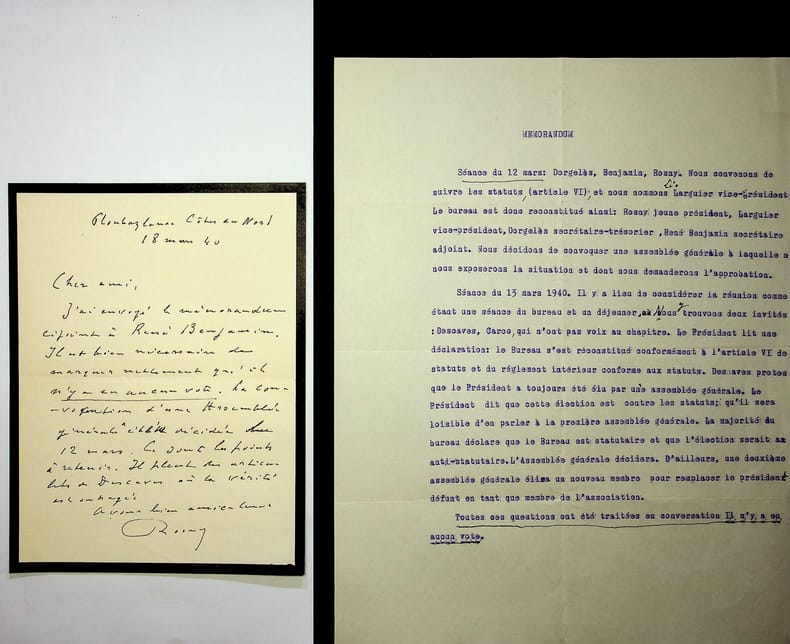 Ploubazlanec Côtes du Nord
18 mars 40
Cher ami,
J'ai envoyé le mémorandum
cijoint à René Benjamin.
Il est bien nécessaire de
marquer nettement qu'il
n'y a eu aucun vote. La con-
vocation d'une Assemblée
générale a été décidée le
12 mars. Ce sont les points
à retenir. Il pleut des articu-
lets de Descaves où la vérité
est outragée
A vous bien amicalement
Rosny
MEMORANDUM
Séance du 12 mars: Dorgelès, Benjamin, Rosny. Nous convenons de
suivre les statuts, (article VI), et nous nommons Léo Larguier vice-président
Le bureau est donc reconstitué ainsi: Rosny jeune président, Larguier
vice-président, Dorgelès secrétaire-trésorier, René Benjamin secrétaire
adjoint. Nous décidons de convoquer une assemblée générale à laquelle
nous exposerons la situation et dont nous demanderons l'approbation.
Séance du 13 mars 1940. Il y a lieu de considérer la réunion comme
étant une séance du bureau et un déjeuner, Nous y trouvons deux invités
: Descaves, Carco, qui n'ont pas voix au chapitre. Le Président lit une
déclaration: le Bureau s'est réconstitué conformément à l'article VI de
statuts et du réglement intérieur conforme aux statuts. Descaves protes
que le Président a toujours été élu par une assemblée générale. Le
Président dit que cette élection est contre les statuts; qu'il sera
loisible d'en parler à la première assemblée générale. La majorité du
bureau déclare que le Bureau est statutaire et que l'élection serait
anti-statutaire. L'Assemblée générale décidera. D'ailleurs, une deuxième
assemblée générale élira un nouveau membre pour remplacer le président
défunt en tant que membre de l'association.
Toutes ces questions ont été traitées en conversation Il n'y a eu
aucun vote.